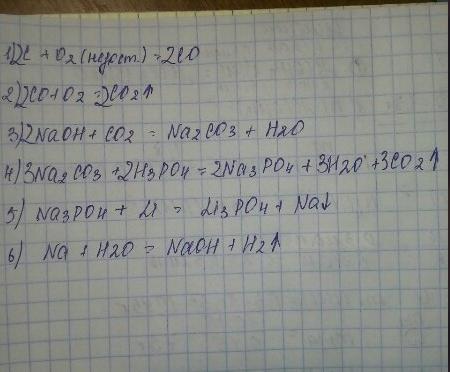 1) 2C + O2 (недост.) = 2CO
2) 2CO + O2 = 2CO2↑
3) 2NaOH + CO2 = Na2CO3 + H2O
4) 3Na2CO3 + 2H3PO4 = 2Na3PO4 + 3H2O + 3CO2↑
5) Na3PO4 + Li = Li3PO4 + Na↓
6) Na + H2O = NaOH + H2↑